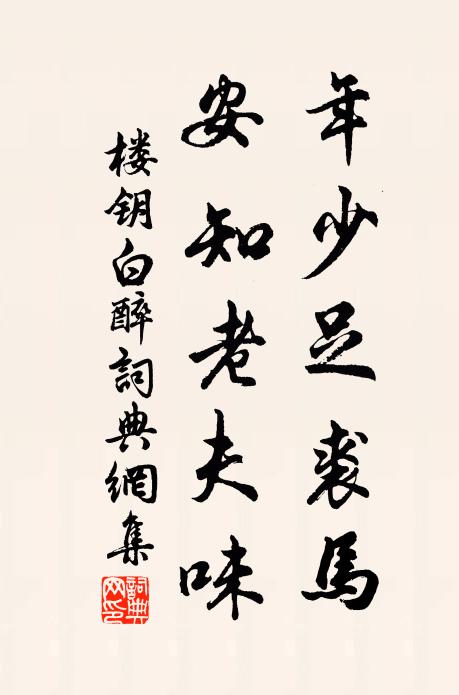 年少足裘馬
安知老夫味
楼钥白醉詞典網集
詞典网印